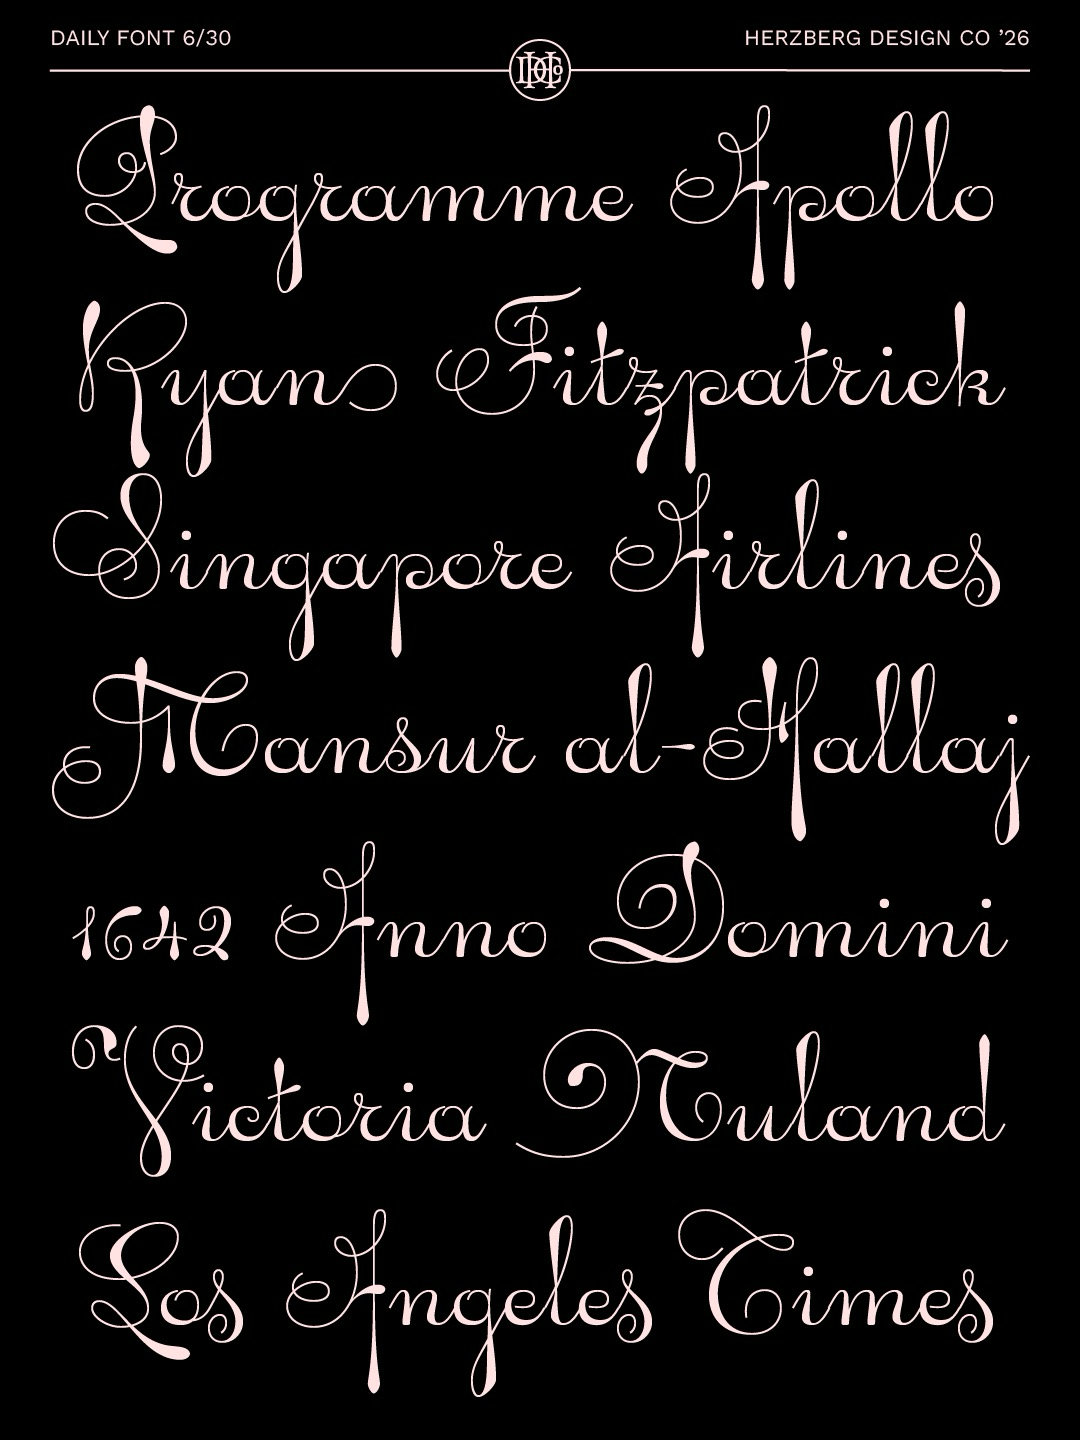 DAILY FONT 6/30
HERZBERG DESIGN CO ’26
HDCo
Programme Apollo
Ryan Fitzpatrick
Singapore Airlines
Mansur al-Hallaj
1642 Anno Domini
Victoria Nuland
Los Angeles Times